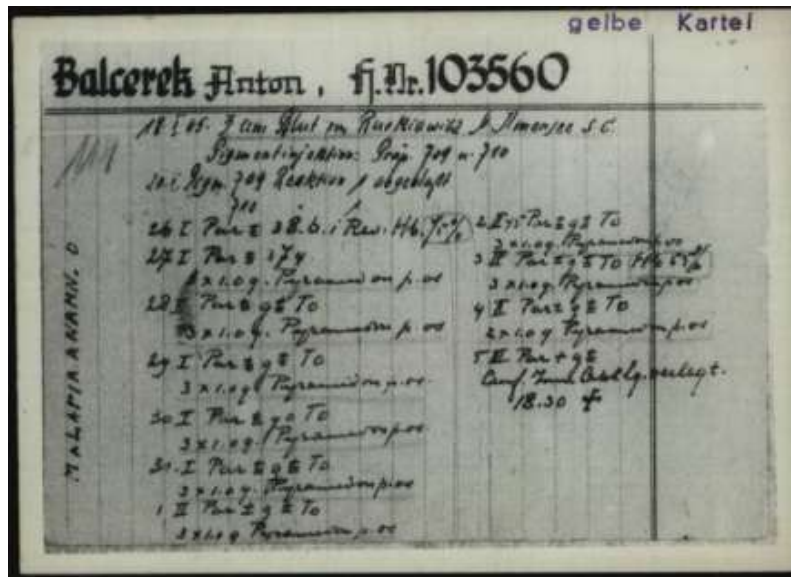 gelbe Kartei
Balcerek Anton, H.Nr. 103560
18 I 45. 3 ccm Blut m
Pigmentinjektion: Präp. 709 u. 710
20.I Pigm. 709 Reaktion
710
26 I Par ± 38.6.i Rev. Hb. 75%
27 I Par ± 37
3x1.0g. Pyramidon p.os
28 I Par ± g ± To
3x1.0g. Pyramidon p.os
29 I Par ± g ± To
3x1.0g Pyramidon p.os.
30 I Par ± g o To
3x1.0g. Pyramidon p.os
31. I Par ± g ± To
3x1.0g. Pyramidon p.os
1 II Par ± g ± To
3x1.0g Pyramidon p.os
2 II 45 Par ± g ± To
3x1.0g. Pyramidon p.os
3 II Par ± g ± To Hb 55%
3x1.0g. Pyramidon p.os
4 II Par ± g ± To
2x1.0g Pyramidon p.os
5 II Par + g ±
verlegt.
18.30
MALARIAANAMN. O